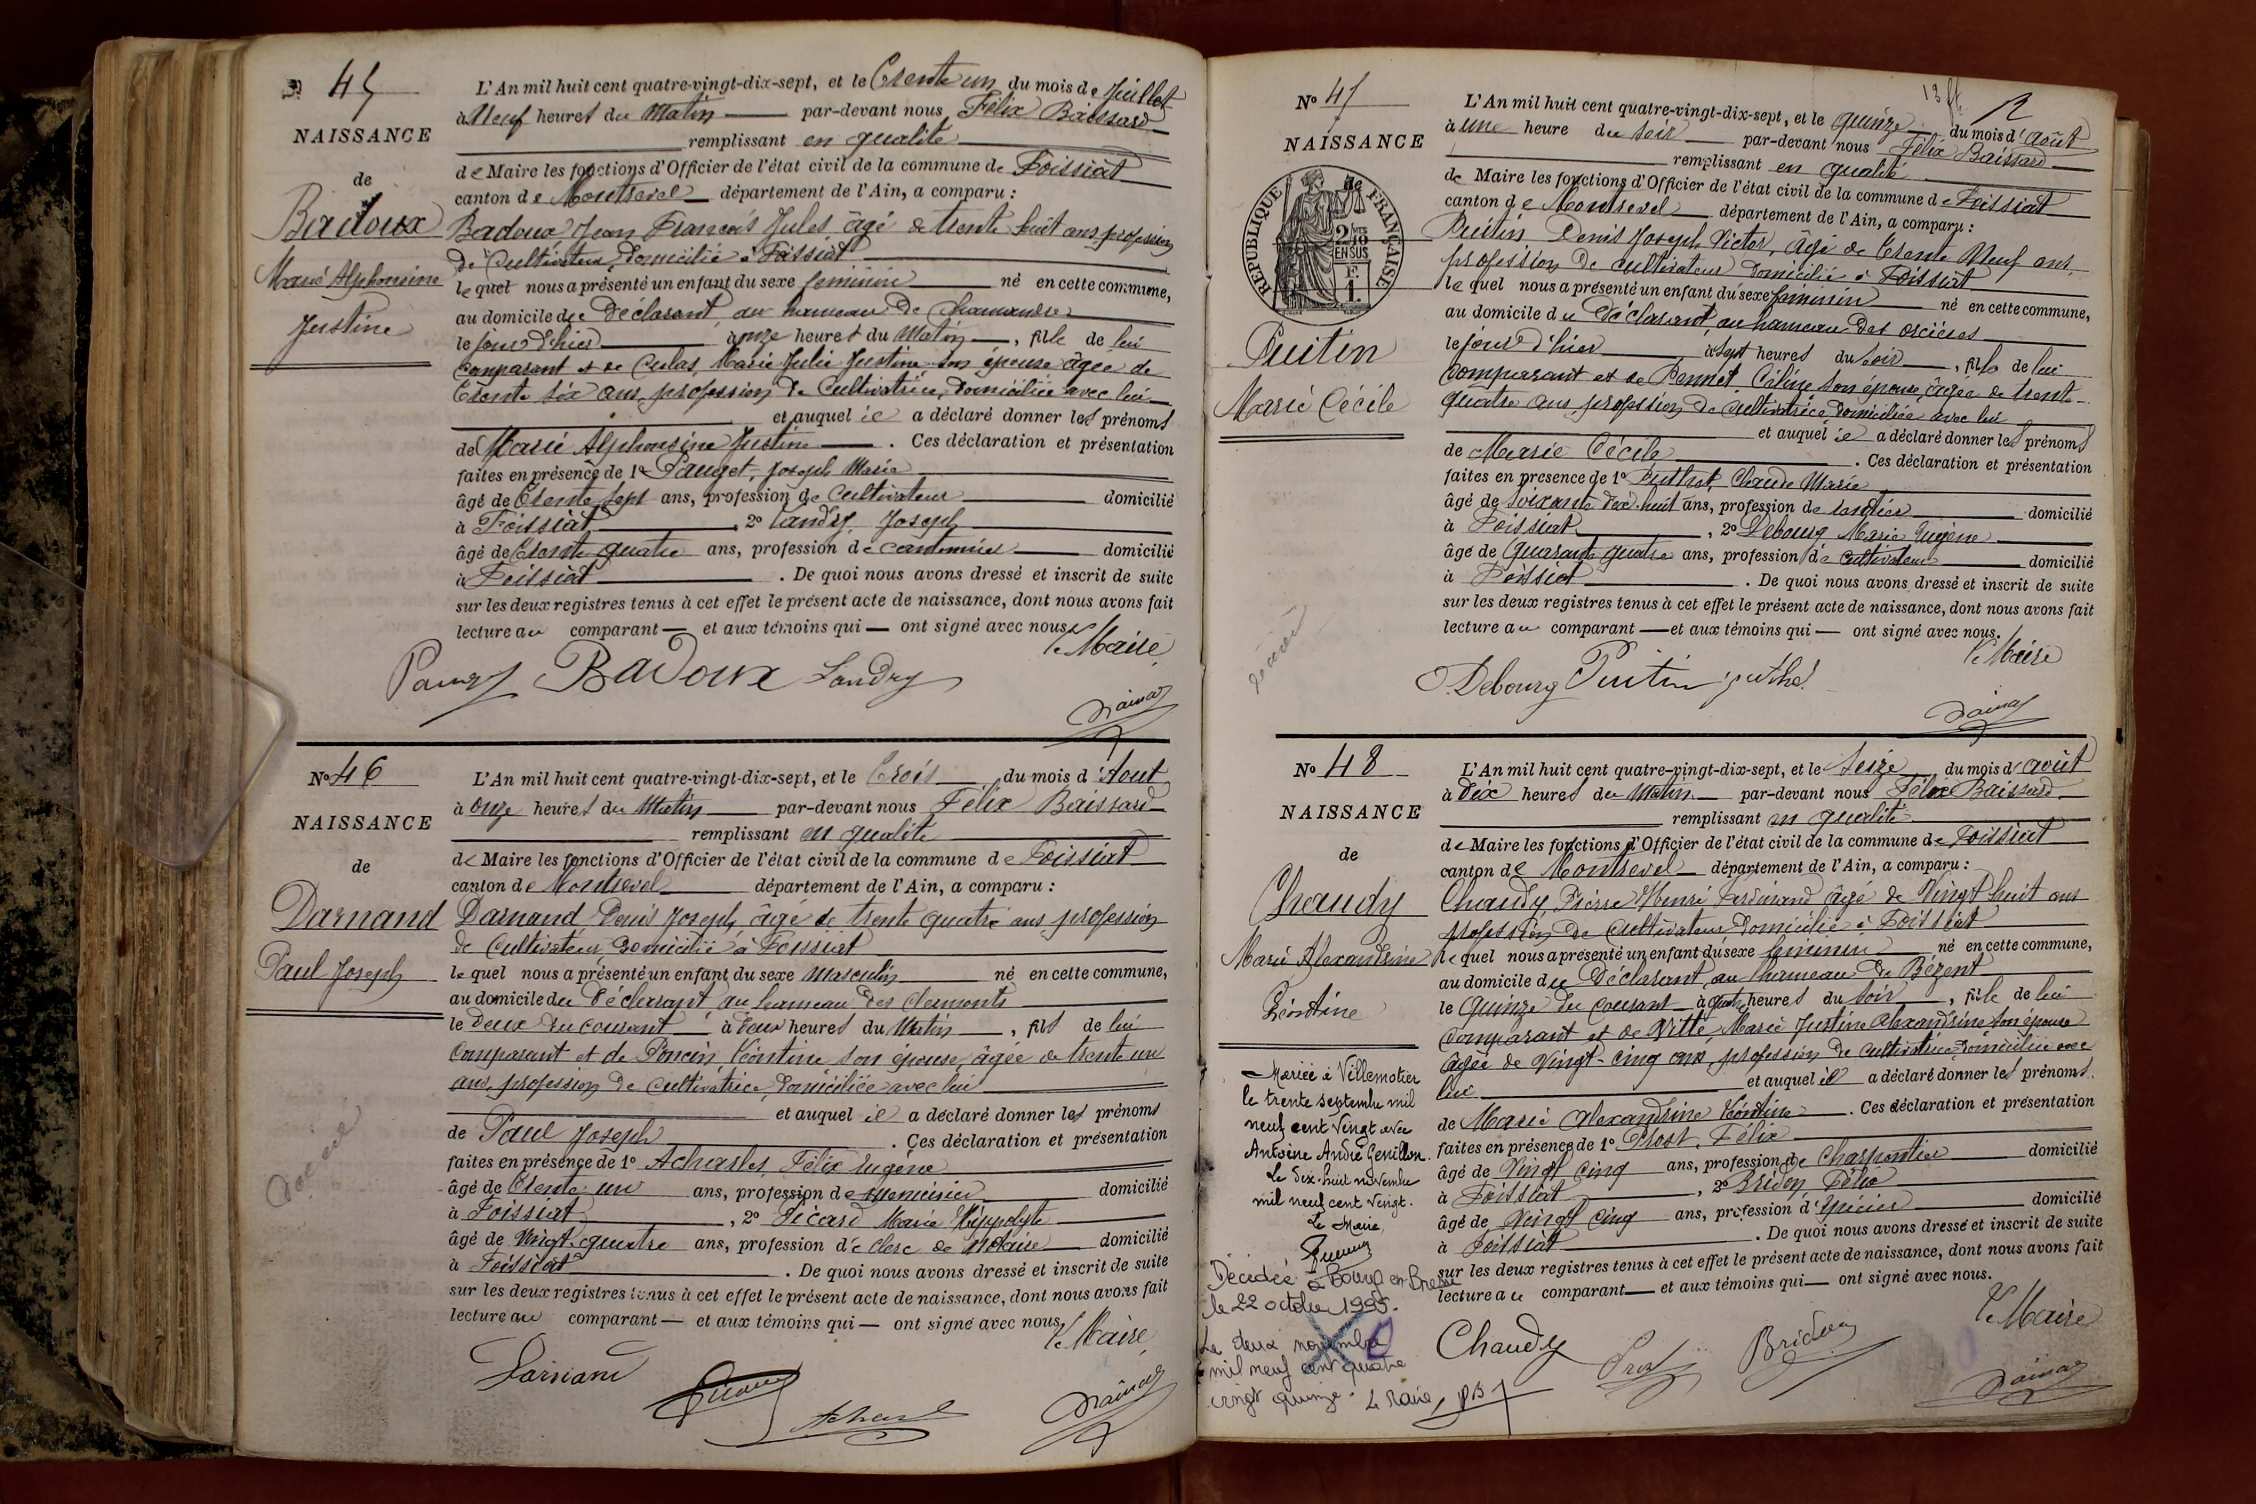 N° 45
NAISSANCE
de
Badoux
Marie Alphonsine
Justine
L'An mil huit cent quatre-vingt-dix-sept, et le Trente un du mois de Juillet
à Neuf heures du Matin par-devant nous Félix Baissard
remplissant en qualité
de Maire les fonctions d'Officier de l'état civil de la commune de Foissiat
canton de Montrevel département de l'Ain, a comparu :
Badoux Jean François Jules âgé de trente huit ans profession
de cultivateur domicilié à Foissiat
lequel nous a présenté un enfant du sexe feminin né en cette commune,
au domicile du déclarant au hameau de
le jour d'hier à onze heures du Matin, fille de lui
comparant et de Marie Julie Justine son épouse âgée de
Trente six ans, profession de cultivatrice, domiciliée avec lui
et auquel il a déclaré donner les prénoms
de Marie Alphonsine Justine. Ces déclaration et présentation
faites en présence de 1° Pauget, Joseph Marie
âgé de Trente sept ans, profession de cultivateur domicilié
à Foissiat, 2° Landry Joseph
âgé de Trente quatre ans, profession de cantonnier domicilié
à Foissiat. De quoi nous avons dressé et inscrit de suite
sur les deux registres tenus à cet effet le présent acte de naissance, dont nous avons fait
lecture au comparant et aux témoins qui ont signé avec nous.
Le Maire
Badoux Landry
N° 46
NAISSANCE
de
Darnand
Paul Joseph
Décédé
L'An mil huit cent quatre-vingt-dix-sept, et le Trois du mois d'Aout
à onze heures du Matin par-devant nous Félix Baissard
remplissant en qualité
de Maire les fonctions d'Officier de l'état civil de la commune de Foissiat
canton de Montrevel département de l'Ain, a comparu :
Darnand Denis Joseph, âgé de trente quatre ans profession
de cultivateur domicilié à Foissiat
lequel nous a présenté un enfant du sexe Masculin né en cette commune,
au domicile du déclarant au hameau des Clermonts
le deux du courant à deux heures du Matin, fils de lui
comparant et de Poncin, Léontine son épouse, âgée de trente un
ans, profession de cultivatrice, domiciliée avec lui
et auquel il a déclaré donner les prénoms
de Paul Joseph. Ces déclaration et présentation
faites en présence de 1° Félix Eugène
âgé de Trente un ans, profession de menuisier domicilié
à Foissiat, 2° Picard Marie Hippolyte
âgé de Vingt quatre ans, profession de clerc de Notaire domicilié
à Foissiat. De quoi nous avons dressé et inscrit de suite
sur les deux registres tenus à cet effet le présent acte de naissance, dont nous avons fait
lecture au comparant et aux témoins qui ont signé avec nous.
Le Maire
Darnand
N° 47
NAISSANCE
REPUBLIQUE FRANÇAISE
2/10 EN SUS
F. 1.
Puitin
Marie Cécile
L'An mil huit cent quatre-vingt-dix-sept, et le quinze du mois d'Août
à une heure du soir par-devant nous Félix Baissard
remplissant en qualité
de Maire les fonctions d'Officier de l'état civil de la commune de Foissiat
canton de Montrevel département de l'Ain, a comparu :
Puitin Denis Joseph Victor, âgé de trente Neuf ans
profession de cultivateur domicilié à Foissiat
lequel nous a présenté un enfant du sexe féminin né en cette commune,
au domicile du déclarant au hameau des
le jour d'hier à sept heures du soir, fille de lui
comparant et de Pennet Céline son épouse, âgée de trente
quatre ans profession de cultivatrice domiciliée avec lui
et auquel il a déclaré donner les prénoms
de Marie Cécile. Ces déclaration et présentation
faites en présence de 1° Claude Marie
âgé de soixante dix huit ans, profession de rentier domicilié
à Foissiat, 2° Debourg Marie Eugène
âgé de Quarante quatre ans, profession de cultivateur domicilié
à Foissiat. De quoi nous avons dressé et inscrit de suite
sur les deux registres tenus à cet effet le présent acte de naissance, dont nous avons fait
lecture au comparant et aux témoins qui ont signé avec nous.
Le Maire
Debourg Puitin
N° 48
NAISSANCE
de
Chaudy
Marie Alexandrine
Léontine
Mariée à Villemotier
le trente septembre mil
neuf cent vingt avec
Antoine André Genillon.
Le dix huit novembre
mil neuf cent vingt.
Le Maire
Décédée à Bourg en Bresse
le 22 octobre 1995.
Le deux novembre
mil neuf cent quatre
vingt quinze. Le Maire,
L'An mil huit cent quatre-vingt-dix-sept, et le Seize du mois d'août
à Dix heures du Matin par-devant nous Félix Baissard
remplissant en qualité
de Maire les fonctions d'Officier de l'état civil de la commune de Foissiat
canton de Montrevel département de l'Ain, a comparu :
Chaudy, Pierre Henri Ferdinand âgé de Vingt huit ans
profession de cultivateur domicilié à Foissiat
lequel nous a présenté un enfant du sexe feminin né en cette commune,
au domicile du déclarant au hameau de Bézent
le quinze du courant à quatre heures du soir, fille de lui
comparant et de Vitte, Marie Justine Alexandrine son épouse
âgée de Vingt-cinq ans, profession de cultivatrice domiciliée avec
lui et auquel il a déclaré donner les prénoms
de Marie Alexandrine Léontine. Ces déclaration et présentation
faites en présence de 1° Prost, Félix
âgé de Vingt cinq ans, profession de Charpentier domicilié
à Foissiat, 2° Bridon Félix
âgé de Vingt cinq ans, profession d'épicier domicilié
à Foissiat. De quoi nous avons dressé et inscrit de suite
sur les deux registres tenus à cet effet le présent acte de naissance, dont nous avons fait
lecture au comparant et aux témoins qui ont signé avec nous.
Le Maire
Chaudy Prost Bridon